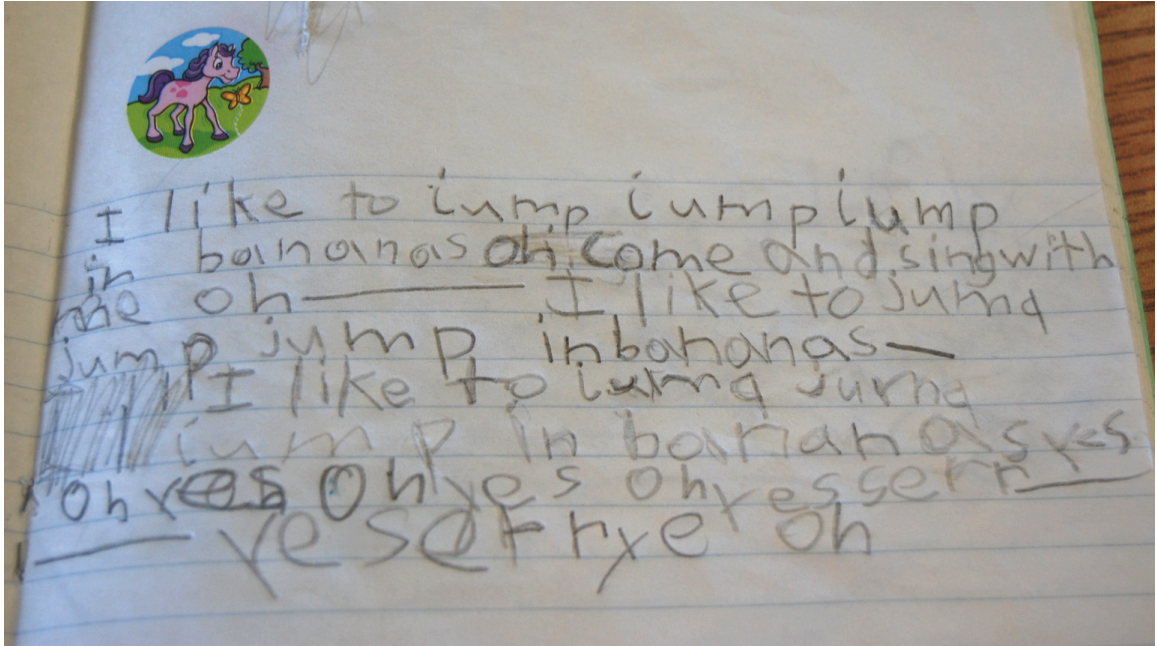 I like to iump iump iump
in bananas oh come and sing with
me oh — I like to jumq
jump jump in bananas —
I like to iumq jumq
iump in bananas yes
oh yes oh yes oh yesserr —
— yeserrye oh